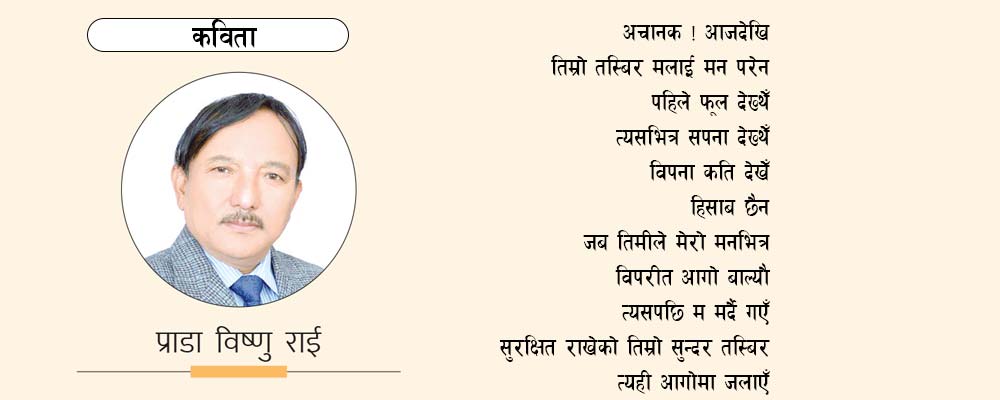 कविता
प्राडा विष्णु राई
अचानक ! आजदेखि
तिम्रो तस्बिर मलाई मन परेन
पहिले फूल देख्थेँ
त्यसभित्र सपना देख्थेँ
विपना कति देखेँ
हिसाब छैन
जब तिमीले मेरो मनभित्र
विपरीत आगो बाल्यौ
त्यसपछि म मर्दै गएँ
सुरक्षित राखेको तिम्रो सुन्दर तस्बिर
त्यही आगोमा जलाएँ